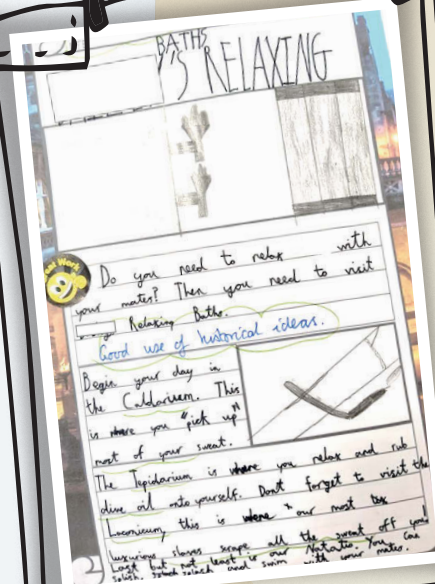 BATHS
'S RELAXING
Great Work
Do you need to relax with
your mates? Then you need to visit
Relaxing Baths.
Good use of historical ideas.
Begin your day in
the Caldarium. This
is where you "pick up"
most of your sweat.
The Tepidarium is where you relax and rub
olive oil onto yourself. Dont forget to visit the
Laconicum, this is where our most
luxurious slaves scrape all the sweat off you!
Last but not least is our Natatio. You can
splish, splash and swim with your mates.